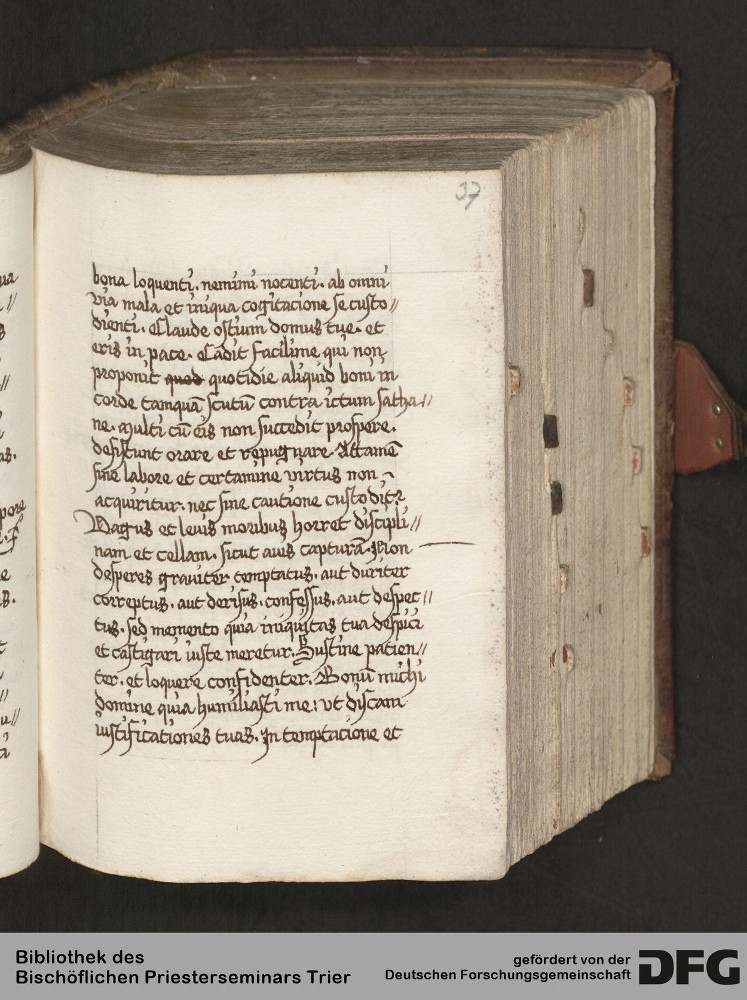 37
bona loquenti. nemini nocenti. ab omni
via mala et iniqua cogitacione se custo//
dienti. Claude ostium domus tue. et
eris in pace. Cadit facilime qui non
proponit quod quotidie aliquid boni in
corde tamquā scutū contra ictum satha//
ne. Multi cū eis non succedit prospere.
desistunt orare et repugnare. Attamē
sine labore et certamine virtus non
acquiritur. nec sine cautione custodit᷑.
Vagus et leuis moribus horret discipli//
nam et cellam. sicut auis capturā. Non
desperes grauiter temptatus. aut duriter
correptus. aut derisus. confessus. aut despec//
tus. sed memento quia iniquitas tua despici
et castigari iuste meretur. Sustine patien//
ter. et loquere confidenter. Bonū michi
domine quia humiliasti me: vt discam
iustificationes tuas. In temptacione et
Bibliothek des
Bischöflichen Priesterseminars Trier
gefördert von der
Deutschen Forschungsgemeinschaft
DFG